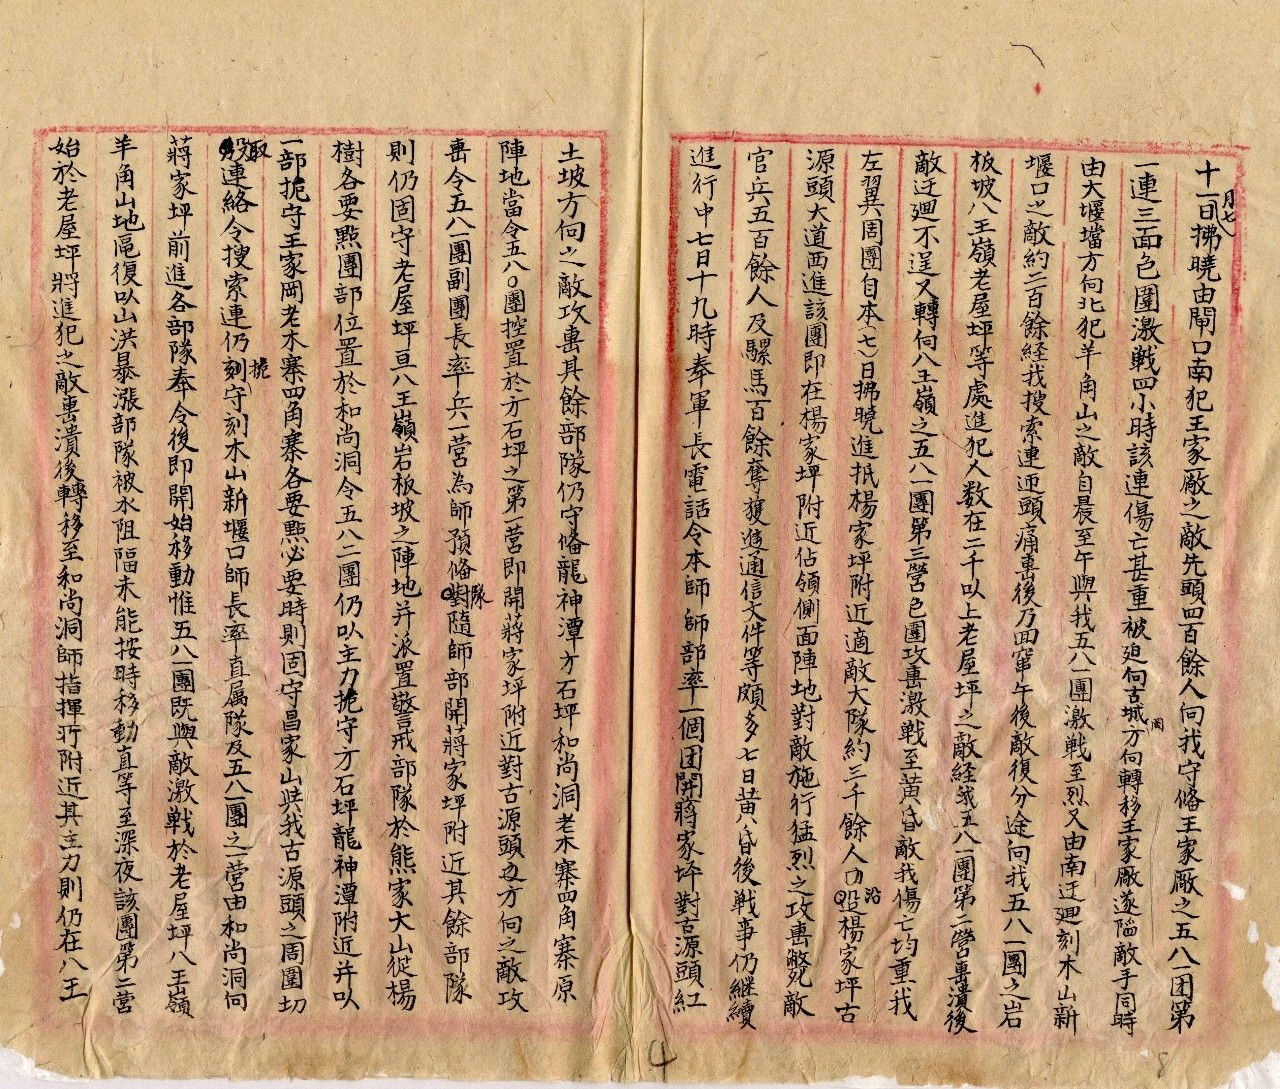 十一月七日拂曉由閘口南犯王家廠之敵先頭四百餘人向我守備王家廠之五八一团第
一連三面包圍激战四小時該連傷亡甚重被迫向古城方向轉移王家廠遂陷敵手同時
由大堰壋方向北犯羊角山之敵自晨至午與我五八一團激戦至烈又由南迂廻刻木山新
堰口之敵約二百餘経我搜索連迎頭痛擊後乃回竄午後敵復分途向我五八一團之岩
板坡八王嶺老屋坪等處進犯人数在二千以上老屋坪之敵経我五八一團第二營擊潰後
敵迂迴不逞又轉向八王嶺之五八一團第三營包圍攻擊激戦至黄昏敵我傷亡均重我
左翼周團自本(七)日拂曉進抵楊家坪附近適敵大隊約三千餘人沿楊家坪古
源頭大道西進該團即在楊家坪附近佔領側面陣地對敵施行猛烈之攻擊斃敵
官兵五百餘人及騾馬百餘奪獲通信文件等頗多七日黄昏後戦事仍継續
進行中七日十九時奉軍長電話令本師師部率一個团開蔣家坪對古源頭紅
土坡方向之敵攻擊其餘部隊仍守備龍神潭方石坪和尚洞老木寨四角寨原
陣地當令五八〇團控置於方石坪之第一營即開蔣家坪附近對古源頭方向之敵攻
擊令五八一團副團長率兵一營為師預備隊隨師部開蔣家坪附近其餘部隊
則仍固守老屋坪亘八王嶺岩板坡之陣地并派置警戒部隊於熊家大山從楊
樹各要點團部位置於和尚洞令五八二團仍以主力扼守方石坪龍神潭附近并以
一部扼守王家岡老木寨四角寨各要點必要時則固守昌家山与我古源頭之周團切
取連絡令搜索連仍扼守刻木山新堰口師長率直属隊及五八一團之一營由和尚洞向
蔣家坪前進各部隊奉令後即開始移動惟五八一團既與敵激戦於老屋坪八王嶺
羊角山地區復以山洪暴漲部隊被水阻隔未能按時移動直等至深夜該團第二營
始於老屋坪將進犯之敵擊潰後轉移至和尚洞師指揮所附近其主力則仍在八王
4